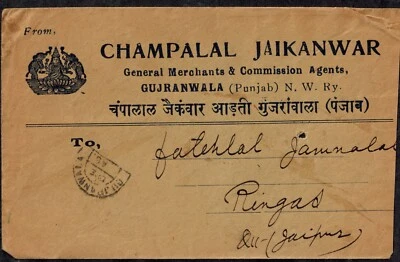 From,
CHAMPALAL JAIKANWAR
General Merchants & Commission Agents,
GUJRANWALA (Punjab) N. W. Ry.
चंपालाल जैकंवार आड़ती गुंजरांवाला (पंजाब)
To,
Fatehlal Jamnalal
Ringas
(Jaipur)
GUJRANWALA